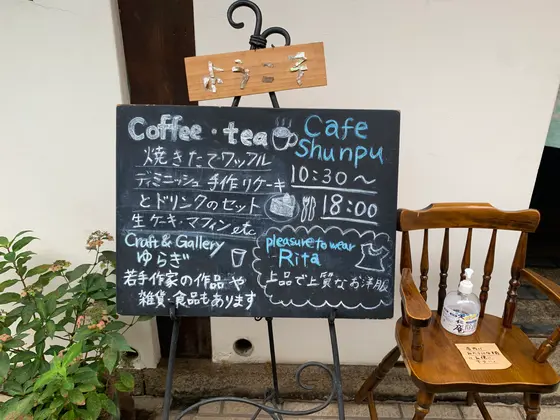 Coffee・tea
Cafe
Shunpu
10:30～
18:00
焼きたてワッフル
ディミニッシュ 手作りケーキ
とドリンクのセット
生ケーキ・マフィン etc
Craft & Gallery
ゆらぎ
若手作家の作品や
雑貨・食品もあります
pleasure to wear
Rita
上品で上質なお洋服